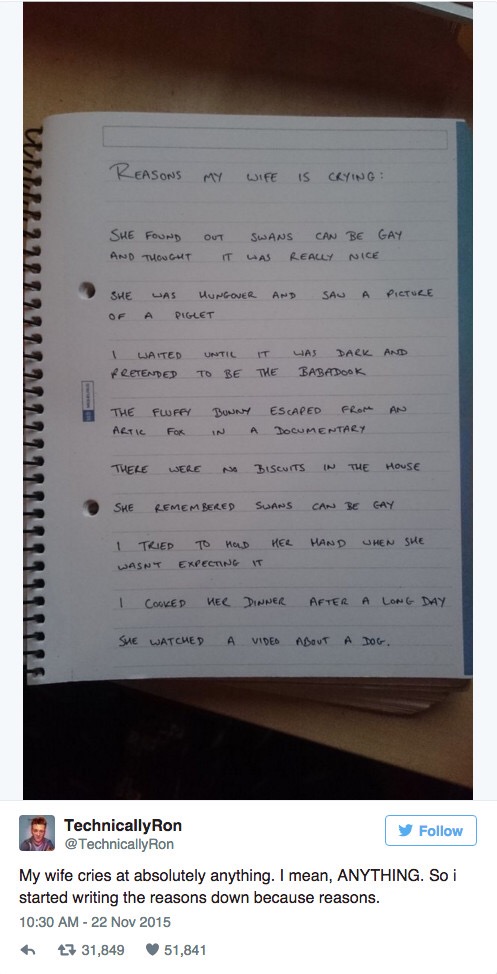 REASONS MY WIFE IS CRYING:
SHE FOUND OUT SWANS CAN BE GAY
AND THOUGHT IT WAS REALLY NICE
SHE WAS HUNGOVER AND SAW A PICTURE
OF A PIGLET
I WAITED UNTIL IT WAS DARK AND
PRETENDED TO BE THE BABADOOK
THE FLUFFY BUNNY ESCAPED FROM AN
ARTIC FOX IN A DOCUMENTARY
THERE WERE NO BISCUITS IN THE HOUSE
SHE REMEMBERED SWANS CAN BE GAY
I TRIED TO HOLD HER HAND WHEN SHE
WASNT EXPECTING IT
I COOKED HER DINNER AFTER A LONG DAY
SHE WATCHED A VIDEO ABOUT A DOG.
TechnicallyRon
@TechnicallyRon
Follow
My wife cries at absolutely anything. I mean, ANYTHING. So i
started writing the reasons down because reasons.
10:30 AM - 22 Nov 2015
31,849 51,841